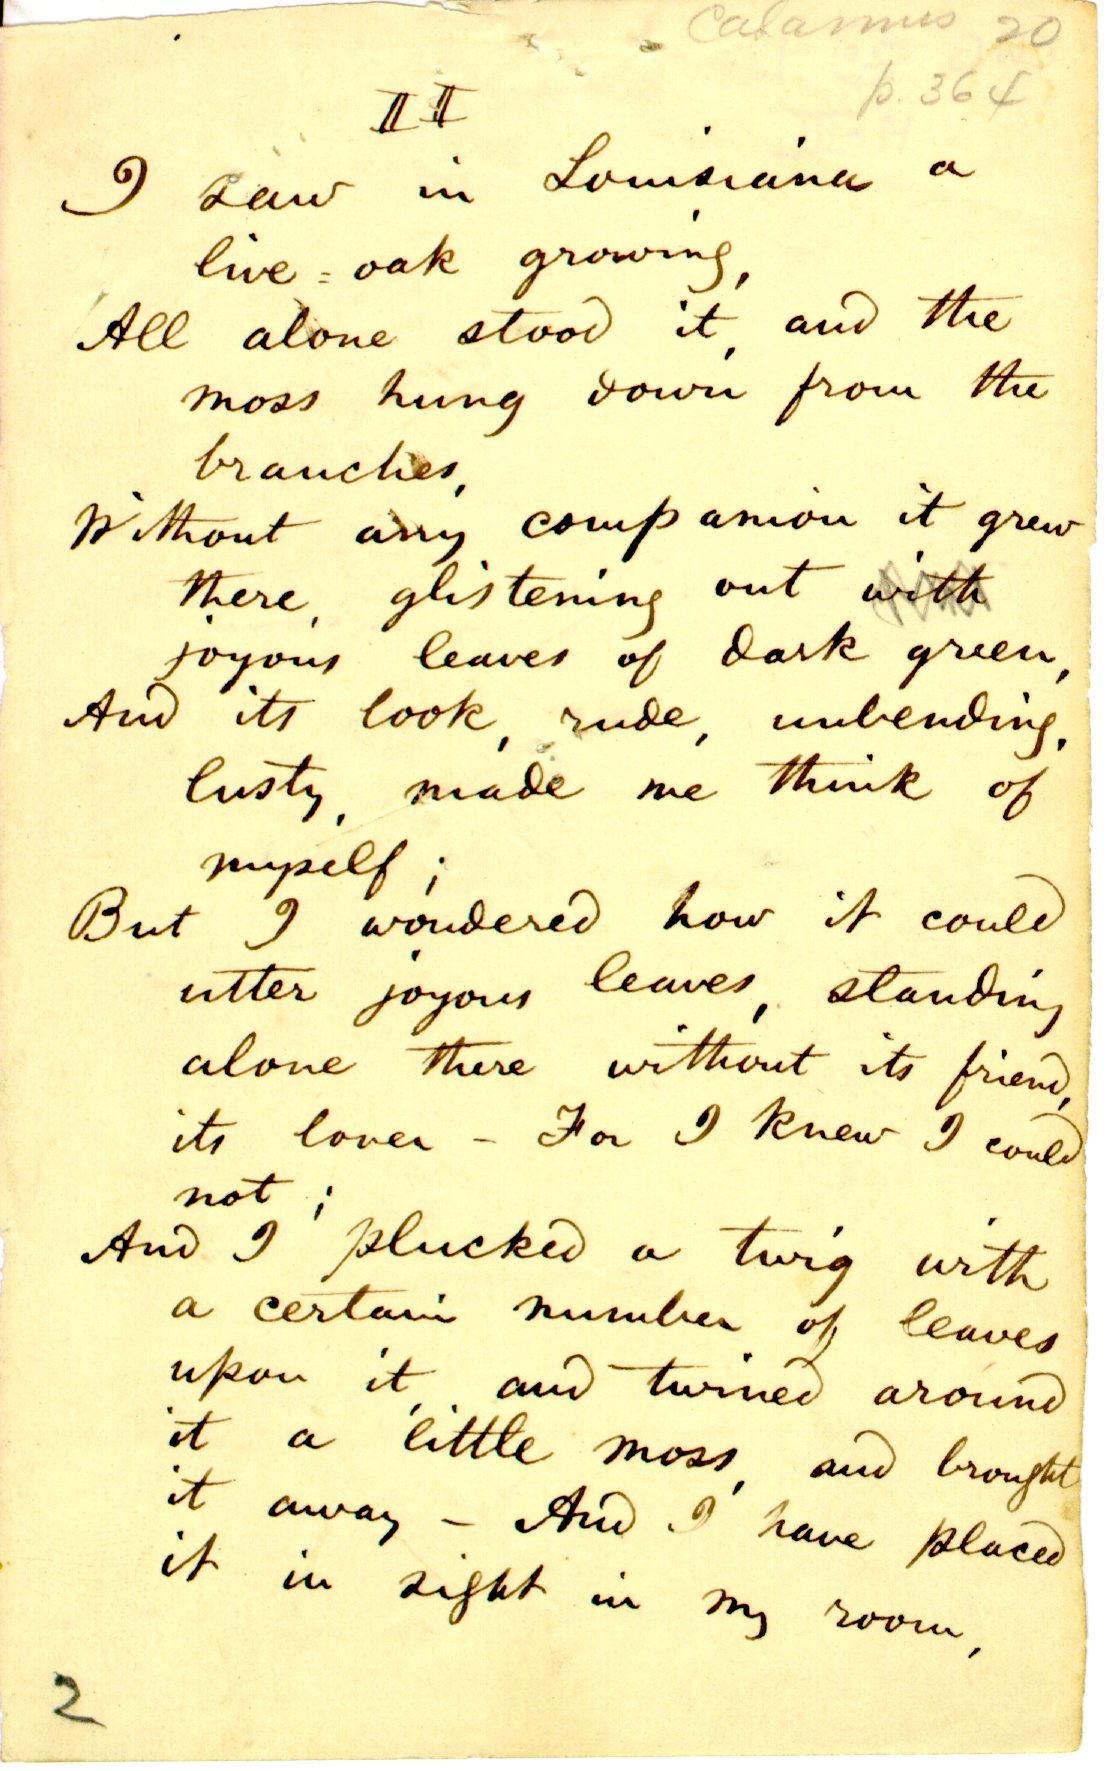 Calamus 20
p. 364
II
I saw in Louisiana a
live=oak growing,
All alone stood it, and the
moss hung down from the
branches,
Without any companion it grew
there, glistening out with
joyous leaves of dark green,
And its look, rude, unbending,
lusty, made me think of
myself;
But I wondered how it could
utter joyous leaves, standing
alone there without its friend,
its lover – For I knew I could
not;
And I plucked a twig with
a certain number of leaves
upon it, and twined around
it a little moss, and brought
it away – And I have placed
it in sight in my room,
2